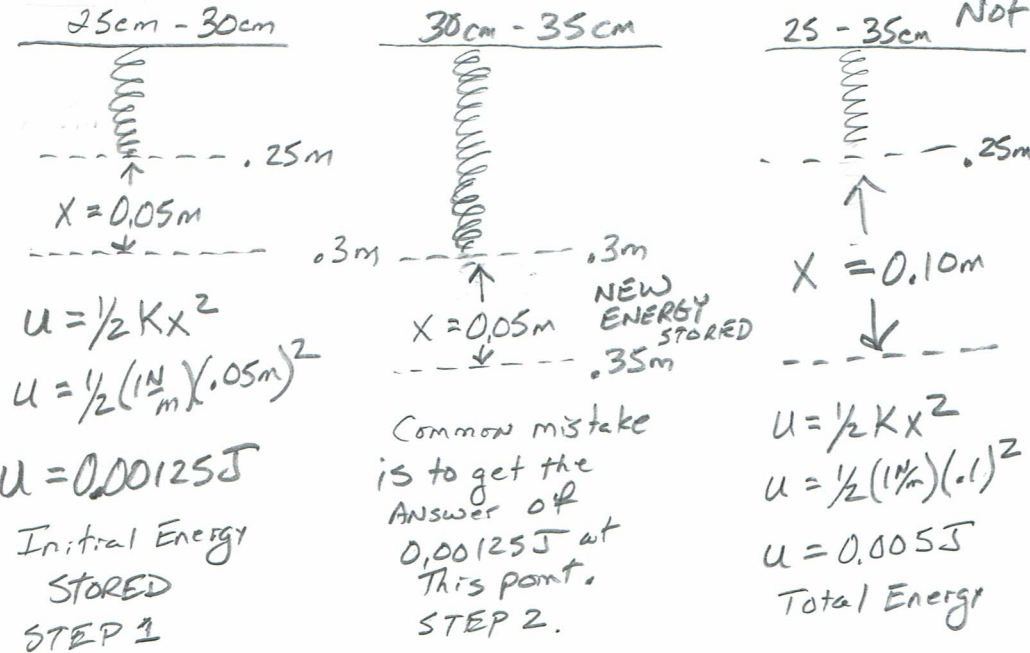 25cm - 30cm
.25m
X = 0.05m
.3m
U = 1/2 Kx²
U = 1/2 (1 N/m)(.05m)²
U = 0.00125J
Initial Energy
STORED
STEP 1
30cm - 35cm
.3m
X = 0.05m
NEW
ENERGY
STORED
.35m
Common mistake
is to get the
ANSWER OF
0.00125J at
This point.
STEP 2.
25 - 35cm Not
.25m
X = 0.10m
U = 1/2 Kx²
U = 1/2 (1 N/m)(.1)²
U = 0.005J
Total Energy